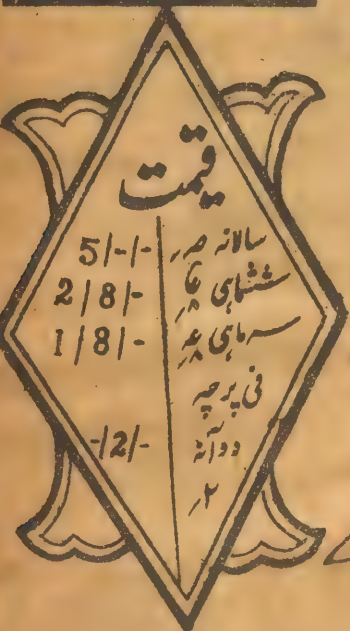 قیمت
سالانہ صہ ر 5/-/-
ششماہی 2/8/-
سہ ماہی 1/8/-
فی پرچہ
دو آنہ -/2/-
۲ر